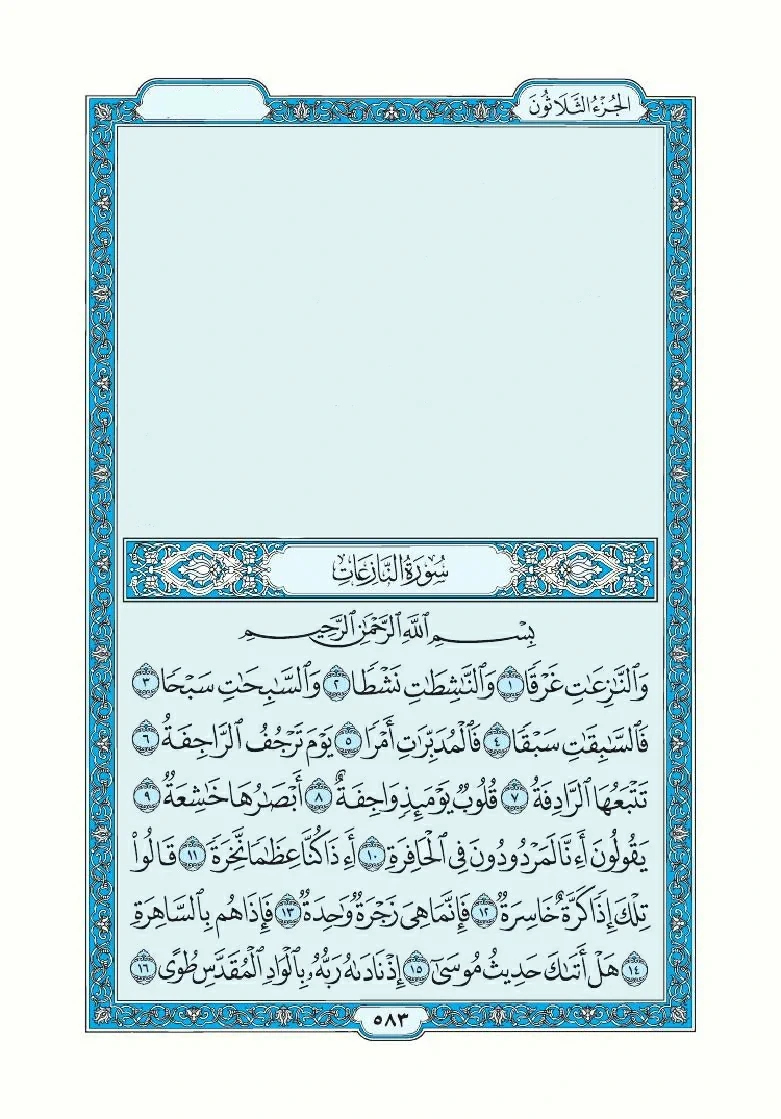 الجُزْءُ الثَّلَاثُونَ
سُورَةُ النَّازِعَاتِ
بِسْمِ ٱللَّهِ ٱلرَّحْمَٰنِ ٱلرَّحِيمِ
وَٱلنَّٰزِعَٰتِ غَرْقٗا ١ وَٱلنَّٰشِطَٰتِ نَشْطٗا ٢ وَٱلسَّٰبِحَٰتِ سَبْحٗا ٣
فَٱلسَّٰبِقَٰتِ سَبْقٗا ٤ فَٱلْمُدَبِّرَٰتِ أَمْرٗا ٥ يَوْمَ تَرْجُفُ ٱلرَّاجِفَةُ ٦
تَتْبَعُهَا ٱلرَّادِفَةُ ٧ قُلُوبٞ يَوْمَئِذٖ وَاجِفَةٌ ٨ أَبْصَٰرُهَا خَٰشِعَةٞ ٩
يَقُولُونَ أَءِنَّا لَمَرْدُودُونَ فِى ٱلْحَافِرَةِ ١٠ أَءِذَا كُنَّا عِظَٰمٗا نَّخِرَةٗ ١١ قَالُوا۟
تِلْكَ إِذٗا كَرَّةٌ خَاسِرَةٞ ١٢ فَإِنَّمَا هِىَ زَجْرَةٞ وَٰحِدَةٞ ١٣ فَإِذَا هُم بِٱلسَّاهِرَةِ
١٤ هَلْ أَتَىٰكَ حَدِيثُ مُوسَىٰٓ ١٥ إِذْ نَادَىٰهُ رَبُّهُۥ بِٱلْوَادِ ٱلْمُقَدَّسِ طُوًى ١٦
٥٨٣